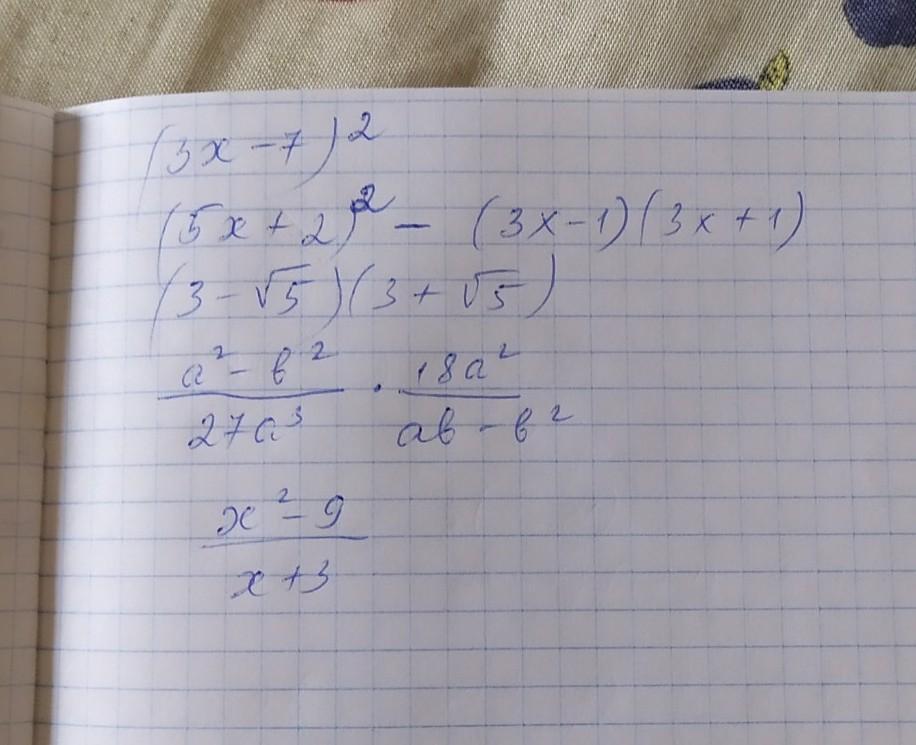 (3x-7)²
(5x+2)² - (3x-1)(3x+1)
(3-√5)(3+√5)
a²-b²/27a³ · 18a²/ab-b²
x²-9/x+3